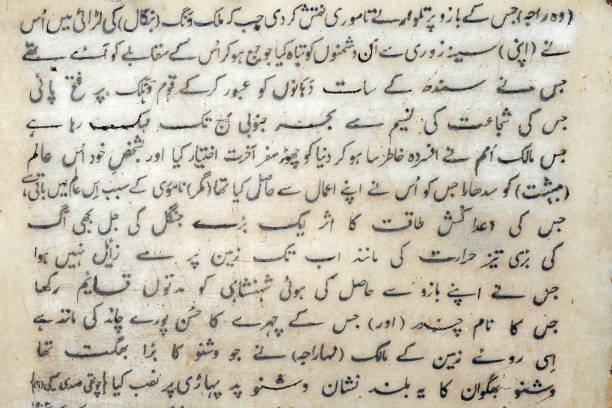 (وہ راجہ) جس کے بازو پر تلوار نے ناموری نقش کر دی جب کہ ملک ونگ (بنگال) کی لڑائی میں اُس
نے (اپنی) سینہ زوری سے اُن دشمنوں کو تباہ کیا جو جمع ہو کر اُس کے مقابلے کو آئے تھے
جس نے سندھ کے سات دہانوں کو عبور کر کے قوم وہلک پر فتح پائی
جس کی شجاعت کی نسیم سے بحر جنوبی آج تک مہک رہا ہے
جس مالک اُمم نے افسردہ خاطر سا ہو کر دنیا کو چھوڑ سفر آخرت اختیار کیا اور بشخص خود اُس عالم
(بہشت) کو سدھارا جس کو اُس نے اپنے اعمال سے حاصل کیا تھا (مگر) ناموری کے سبب اِس عالم میں باقی ہے
جس کی اعدا کُش طاقت کا اثر ایک بڑے جنگل کی جل بُھی آگ
کی بڑی تیز حرارت کی مانند اب تک زمین پر سے زائل نہیں ہوا
جس نے اپنے بازو سے حاصل کی ہوئی شہنشاہی کو مدتوں قائم رکھا
جس کا نام چندر (اور) جس کے چہرے کا حُسن پورے چاند کی مانند ہے
اِسی روئے زمین کے مالک (مہاراجہ) نے جو وشنو کا بڑا بھگت تھا
وشنو بھگوان کا یہ بلند نشان وشنو پد پہاڑی پر نصب کیا (چوتھی صدی